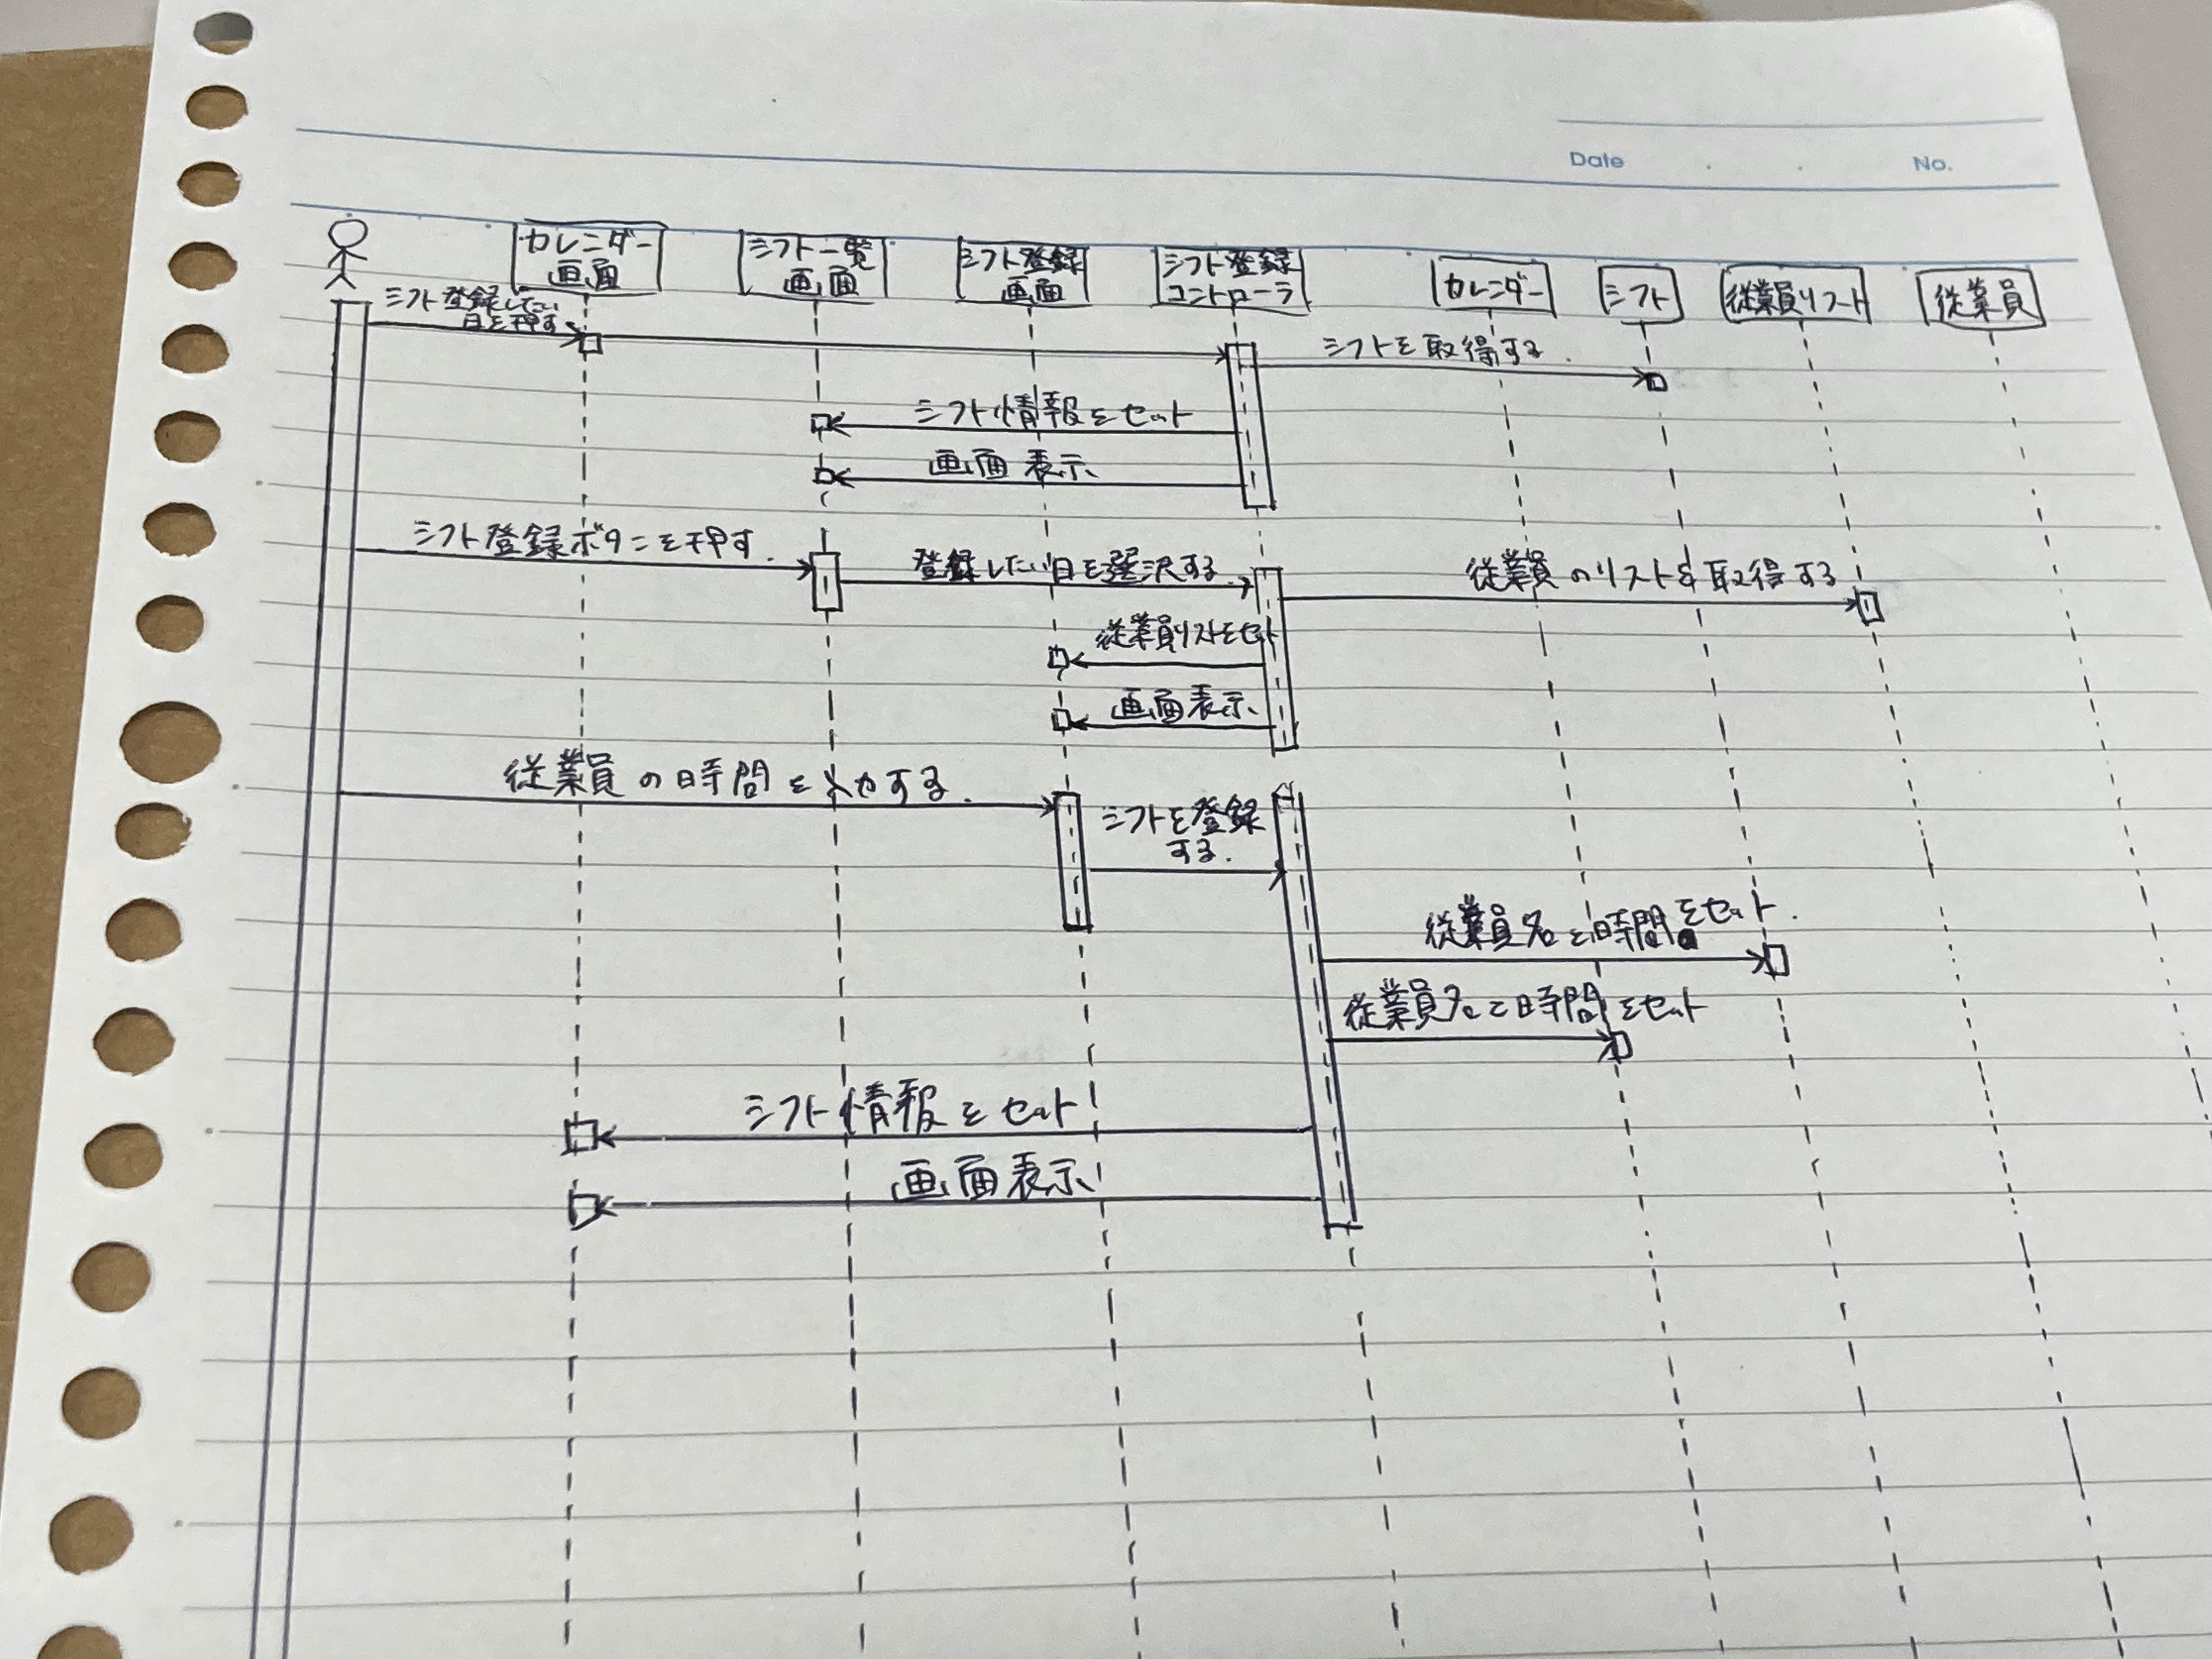 Date . . No.
カレンダー
画面
シフト一覧
画面
シフト登録
画面
シフト登録
コントローラ
カレンダー
シフト
従業員リスト
従業員
シフト登録したい
日を押す
シフトを取得する.
シフト情報をセット
画面表示
シフト登録ボタンを押す.
登録したい日を選択する.
従業員のリストを取得する
従業員リストをセット
画面表示
従業員の時間を入力する.
シフトを登録
する.
従業員名と時間をセット.
従業員名と時間をセット
シフト情報をセット
画面表示